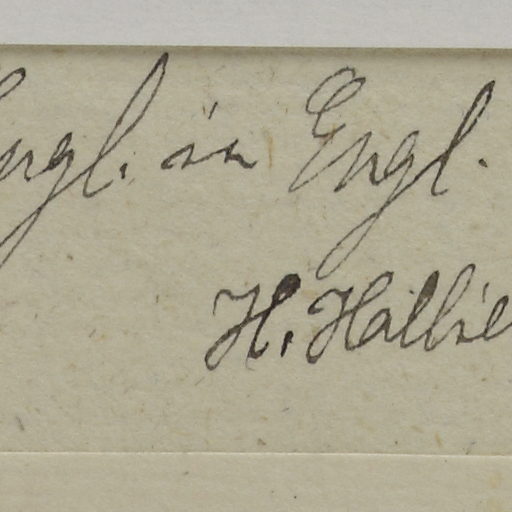 Engl. in Engl.
H. Hallie